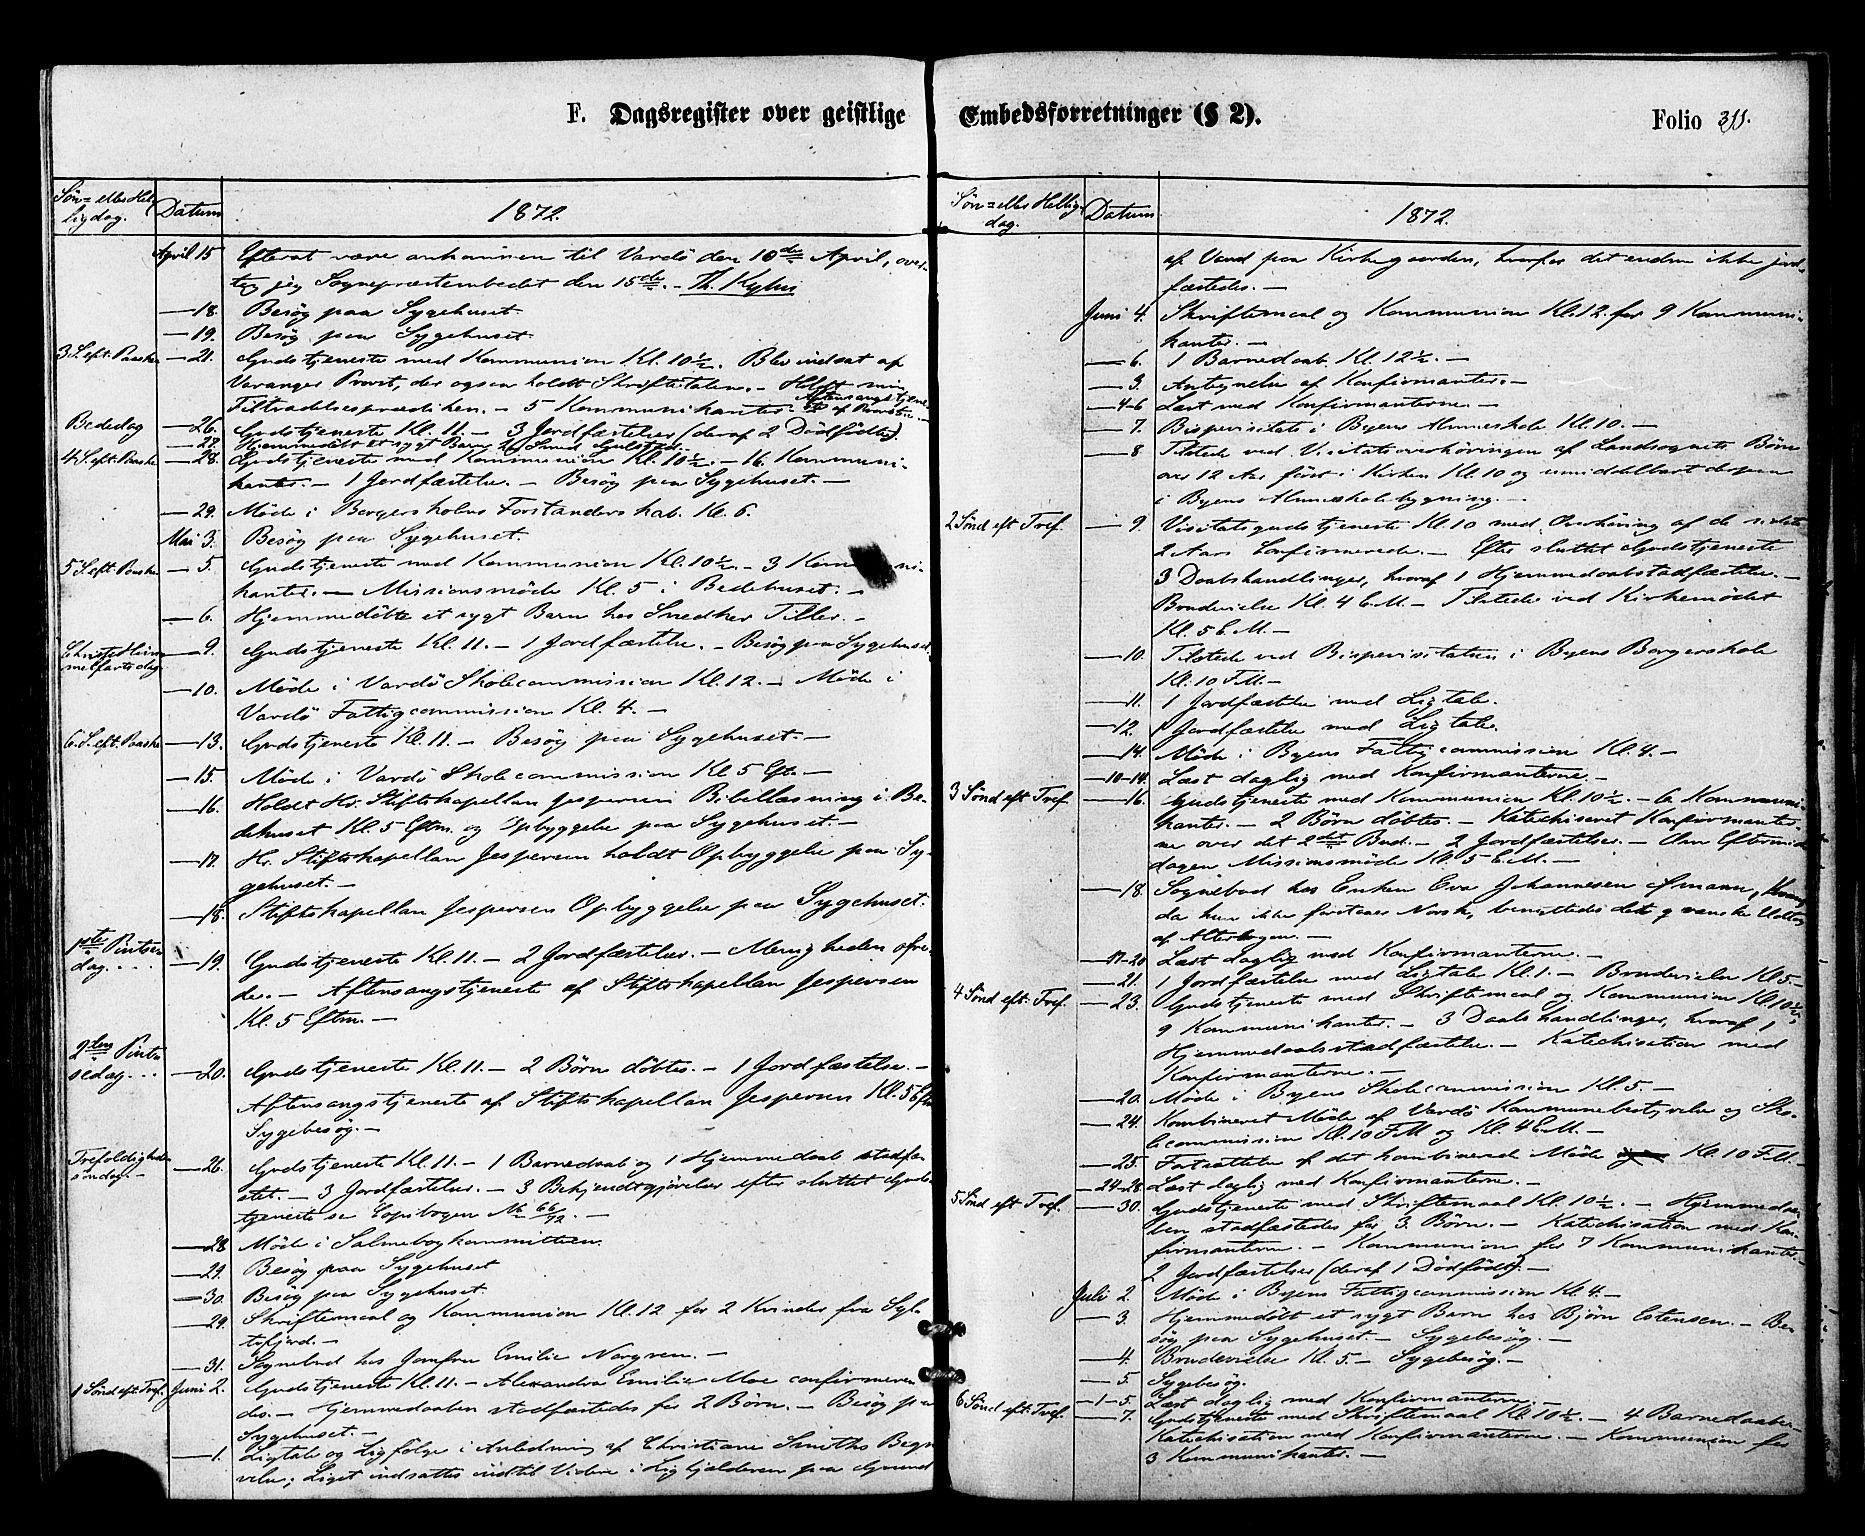 F. Dagsregister over geistlige
Søn- eller Hel-
ligdag.
Datum
1872.
April 15 Efterat være ankommen til Vardö den 10de April, over-
tog jeg Sognepræstembedet den 15de. - Th. Kyhus
— 18. Besøg paa Sygehuset.
— 19. Besøg paa Sygehuset.
3 S. eft. Paaske — 21. Gudstjeneste med Kommunion Kl. 10½. Blev indsat af
Varanger Provst, der ogsaa holdt Skriftetalen. - Holdt min
Tiltrædelsesprædiken. - 5 Kommunikanter. - Aftensangstjene-
ste af Provsten. -
Bededag — 26. Gudstjeneste Kl. 11. - 3 Jordfæstelser (deraf 2 Dödfödte).
— 27. Hjemmedöbt et sygt Barn
4 S. eft. Paaske — 28. Gudstjeneste med Kommunion Kl. 10½. - 16 Kommuni-
kanter. - 1 Jordfæstelse. - Besøg paa Sygehuset. -
— 29. Møde i Borgerskolens Forstanderskab. Kl. 6.
Mai 3. Besøg paa Sygehuset.
5 S. eft. Paaske — 5. Gudstjeneste med Kommunion Kl. 10½. - 3 Kommuni-
kanter. - Missionsmöde Kl. 5 i Bedehuset. -
— 6. Hjemmedöbte et sygt Barn hos Snedker Tiller. -
Christi Him-
melfartsdag — 9. Gudstjeneste Kl. 11. - 1 Jordfæstelse. - Besøg paa Sygehuset.
— 10. Møde i Vardö Skolecommission Kl. 12. - Møde i
Vardö Fattigcommission Kl. 4. -
6. S. eft. Paaske — 13. Gudstjeneste Kl. 11. - Besøg paa Sygehuset. -
— 15. Møde i Vardö Skolecommission Kl 5 Eft. -
— 16. Holdt Hr. Stiftskapellan Jespersen Bibellæsning i Be-
dehuset Kl. 5 Eftm. og Opbyggelse paa Sygehuset. -
— 17. Hr. Stiftskapellan Jespersen holdt Opbyggelse paa Sy-
gehuset. -
— 18. Stiftskapellan Jespersen Opbyggelse paa Sygehuset.
1ste Pintse-
dag. . . . — 19. Gudstjeneste Kl. 11. - 2 Jordfæstelser. - Menigheden ofre-
de. - Aftensangstjeneste af Stiftskapellan Jespersen
Kl. 5 Eftm. -
2den Pint-
sedag. . . — 20. Gudstjeneste Kl. 11. - 2 Börn döbtes. - 1 Jordfæstelse. -
Aftensangstjeneste af Stiftskapellan Jespersen Kl. 5 Eftm
Sygebesög. -
Trefoldigheds
söndag. - — 26. Gudstjeneste Kl. 11. - 1 Barnedaab og 1 Hjemmedaab stadfæ-
stet. - 3 Jordfæstelser. - 3 Bekjendtgjörelser efter sluttet Guds-
tjeneste se Copibogen No 66/72. -
— 28. Møde i Salmebogkommitteen.
— 29. Besøg paa Sygehuset
— 30. Besøg paa Sygehuset.
— 29. Skriftemaal og Kommunion Kl. 12 for 2 Kvinder fra Syl-
tefjord. -
— 31. Sognebud hos Jomfru Emilie Norgren. -
1 Sönd eft. Tref. Juni 2. Gudstjeneste Kl. 11. - Alexandra Emilie Moe confirmere-
des. - Hjemmedaaben stadfæstedes for 2 Börn. - Besög paa
Sygehuset. -
— 1. Ligtale og Ligfölge i Anledning af Christiane Smiths Begra-
velse; Liget indsattes indtil Videre i Ligkjælderen paa Grund

Embedsforretninger (§ 2).
Folio 311.
Søn- eller Hellig-
dag.
Datum.
1872.
af Vand paa Kirkegaarden, hvorfor det endnu ikke jord-
fæstedes. -
Juni 4. Skriftemaal og Kommunion Kl. 12 for 9 Kommuni-
kanter. -
— 6. 1 Barnedaab. Kl. 12½. -
— 3. Antegnelse af Konfirmanter. -
— 4-6 Læst med Konfirmanterne. -
— 7. Bispevisitats i Byens Almueskole Kl. 10. -
— 8 Tilstede ved Visitatsoverhöringen af Landsognets Börn
over 12 Aar först i Kirken Kl. 10 og umiddelbart derpaa
i Byens Almueskolebygning. -
2 Sönd eft Tref. — 9. Visitatsgudstjeneste Kl. 10 med Overhöring af de sidste
2 Aars Confirmerede. - Efter sluttet Gudstjeneste
3 Daabshandlinger, hvoraf 1 Hjemmedaabstadfæstelse. -
Brudevielse Kl. 4 E.M. - Tilstede ved Kirkemödet
Kl. 5 E.M. -
— 10. Tilstede ved Bispevisitatsen i Byens Borgerskole
Kl. 10 F.M. -
— 11. 1 Jordfæstelse med Ligtale.
— 12. 1 Jordfæstelse med Ligtale.
— 14. Møde i Byens Fattigcommission Kl. 4. -
— 10-14. Læst daglig med Konfirmanterne. -
3 Sönd eft Tref — 16. Gudstjeneste med Kommunion Kl. 10½. - 6 Kommuni-
kanter. - 2 Börn döbtes. - Katechiseret Konfirmanter-
ne over det 2det Bud. - 2 Jordfæstelser. - Om Eftermid-
dagen Missionsmöde Kl. 5 E.M. -
— 18. Sognebud hos Enken Eva Johannesen
da hun ikke forstaaer Norsk, benyttedes det qvænske Udtog
af Alterbogen. -
— 17-20 Læst daglig med Konfirmanterne. -
— 21. 1 Jordfæstelse med Ligtale Kl. 1. - Brudevielse Kl 5. -
4 Sönd eft. Tref. — 23. Gudstjeneste med Skriftemaal og Kommunion Kl 10½;
9 Kommunikanter. - 3 Daabshandlinger, hvoraf 1
Hjemmedaabsstadfæstelse. - Katechisation med
Konfirmanterne. -
— 20. Møde i Byens Skolecommission Kl. 5 -
— 24. Kombineret Møde af Vardö Kommunebestyrelse og Sko-
lecommission Kl. 10 F.M og Kl. 4 E.M. -
— 25. Fortsættelse af det kombinerede Möde Kl. 10 F.M. -
— 24-28. Læst daglig med Konfirmanterne. -
5 Sönd eft Tref. — 30. Gudstjeneste med Skriftemaal Kl. 10½. - Hjemmedaa-
ben stadfæstedes for 3. Börn. - Katechisation med Kon-
firmanterne. - Kommunion for 7 Kommunikanter.
2 Jordfæstelser (deraf 1 Dödfödt). -
Juli 2. Møde i Byens Fattigcommission Kl. 4. -
— 3. Hjemmedöbt et sygt Barn hos Björn Estensen. - Be-
sög paa Sygehuset. - Sygebesög. -
— 4. Brudevielse Kl. 5. - Sygebesög. -
— 5. Sygebesög.
— 1-5. Læst daglig med Konfirmanterne. -
6 Sönd eft. Tref. — 7. Gudstjeneste med Skriftemaal Kl 10½. - 4 Barnedaabe. -
Katechisation med Konfirmanterne. - Kommunion for
3 Kommunikanter. -